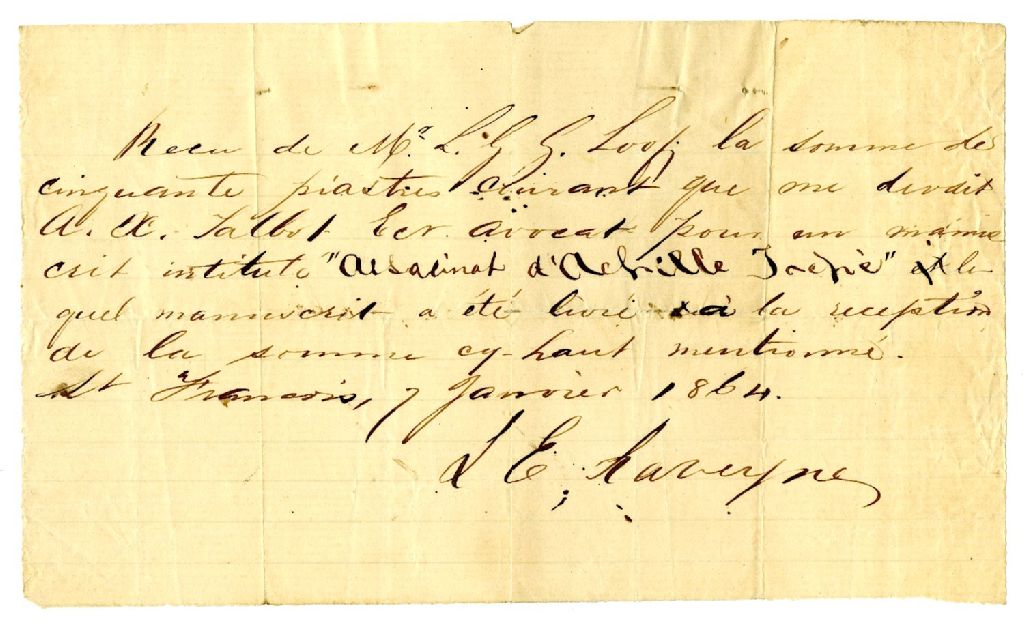 Recu de Mr. L. G. G. Loop la somme de
cinquante piastres courant que me devait
A. X. Talbot Ecr. avocat pour un manus
crit intitulé "Assasinat d'Achille
quel manuscrit a été livré à la reception
de la somme cy-haut mentionné.
St François, 7 Janvier 1864.
L E, Lavergne